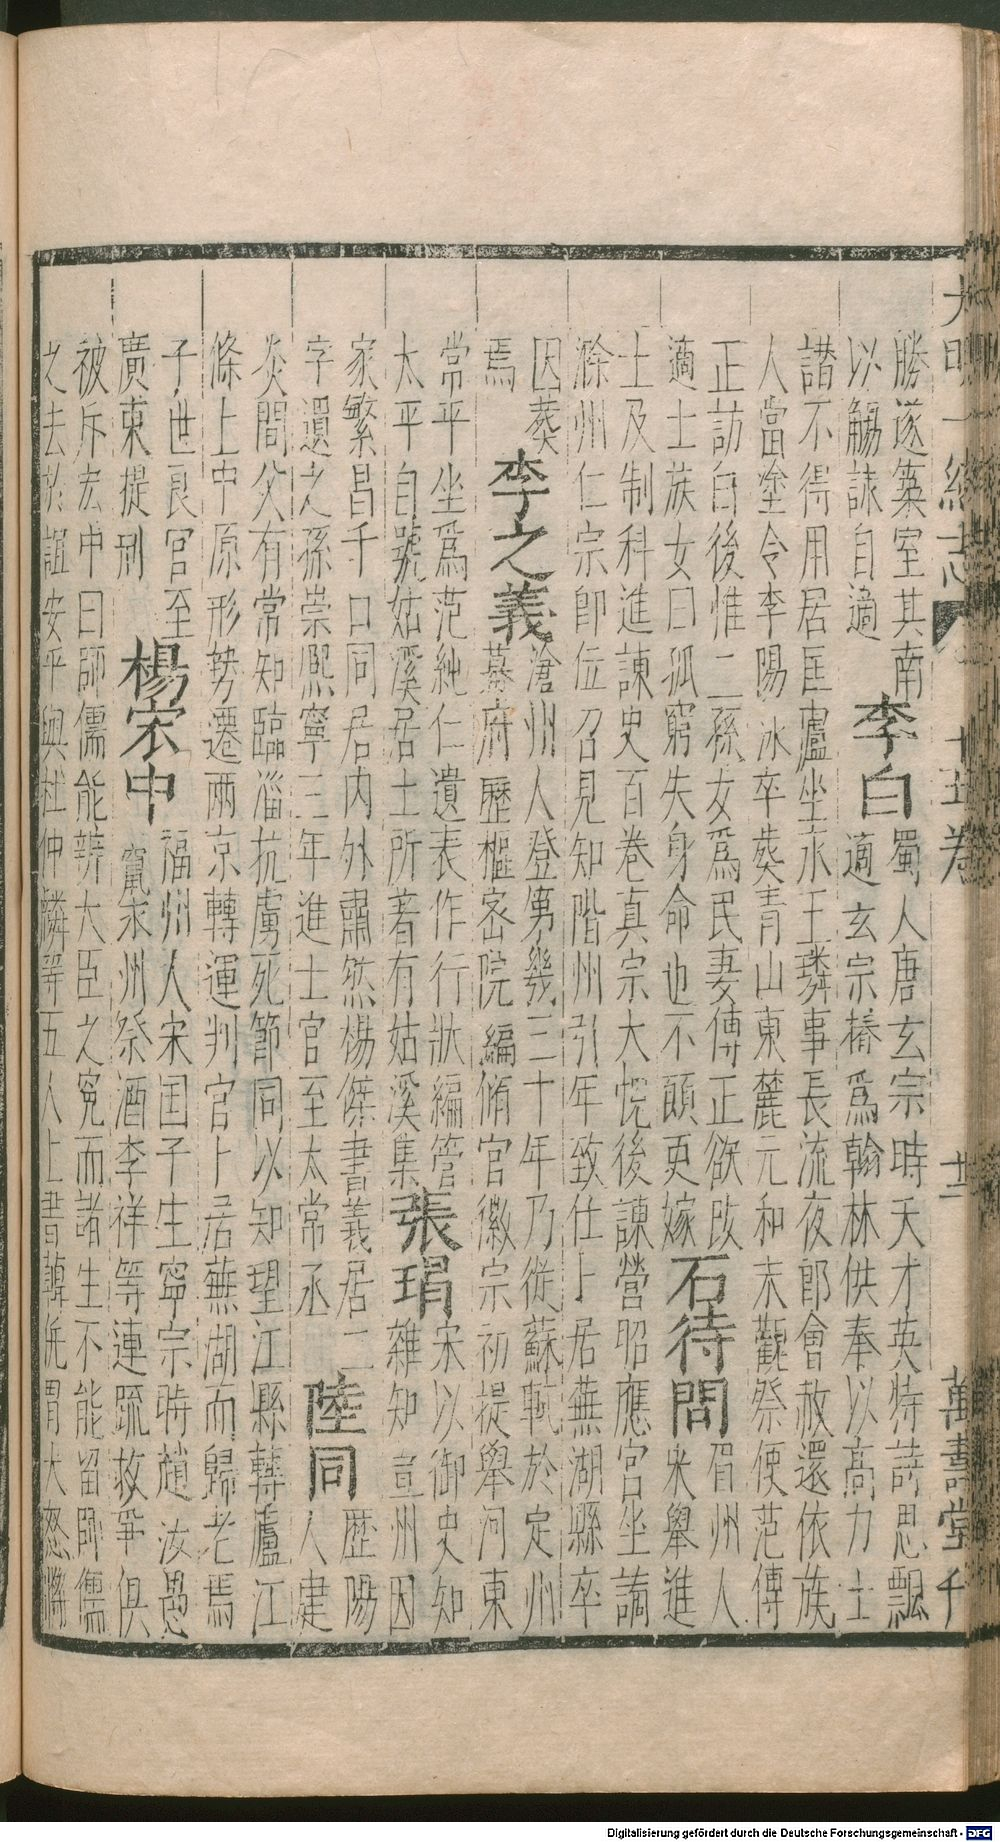 大明一統志 十五卷 廿一 萬壽堂刊
勝遂築室其南
以觴詠自適
李白
蜀人唐玄宗時天才英特詩思飄
適玄宗樁爲翰林供奉以高力士
譖不得用居匡廬坐永王璘事長流夜郎會赦還依族
人當塗令李陽氷卒葬青山東麓元和末觀祭使范傳
正訪白後惟二孫女爲民妻傳正欲改
適士族女曰孤窮失身命也不願更嫁
石待問
眉州人
來舉進
士及制科進諫史百卷真宗大悅後諫營昭應宮坐謫
滁州仁宗卽位召見知階州引年致仕卜居蕪湖縣卒
因葬
焉
李之義
滄州人登第幾三十年乃從蘇軾於定州
幕府歷樞密院編脩官徽宗初提舉河東
常平坐爲范純仁遺表作行狀編管
太平自號姑溪居士所著有姑溪集
張琄
宋以御史知
雜知宣州因
家繁昌千口同居內外肅然楊傑書義居二
字遺之孫崇熈寧三年進士官至太常丞
陸同
歷陽
人建
炎間父有常知臨淄抗虜死節同以知望江縣轉廬江
條上中原形勢遷兩京轉運判官卜居蕪湖而歸老焉
子世良官至
廣東提刑
楊宏中
福州人宋国子生寧宗時趙汝愚
竄永州祭酒李祥等連疏救爭俱
被斥宏中曰師儒能辨大臣之冤而諸生不能留師儒
之去於誼安乎與杜仲麟等五人上書韓侂胄大怒
Digitalisierung gefördert durch die Deutsche Forschungsgemeinschaft - DFG